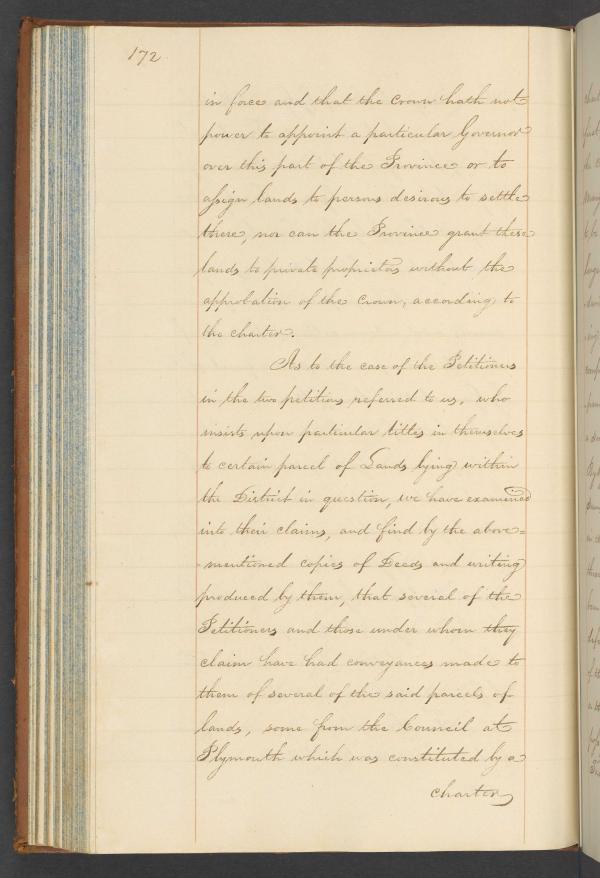 172
in force and that the Crown hath not
power to appoint a particular Governor
over this part of the Province or to
assign lands to persons desirous to settle
there, nor can the Province grant these
lands to private proprietors without the
approbation of the Crown, according to
the charter.
As to the case of the Petitioners
in the two petitions referred to us, who
insists upon particular titles in themselves
to certain parcel of Lands lying within
the District in question, we have examined
into their claims, and find by the above=
-mentioned copies of Deeds and writing
produced by them, that several of the
Petitioners and those under whom they
claim have had conveyances made to
them of several of the said parcels of
lands, some from the Council at
Plymouth which was constituted by a
charter